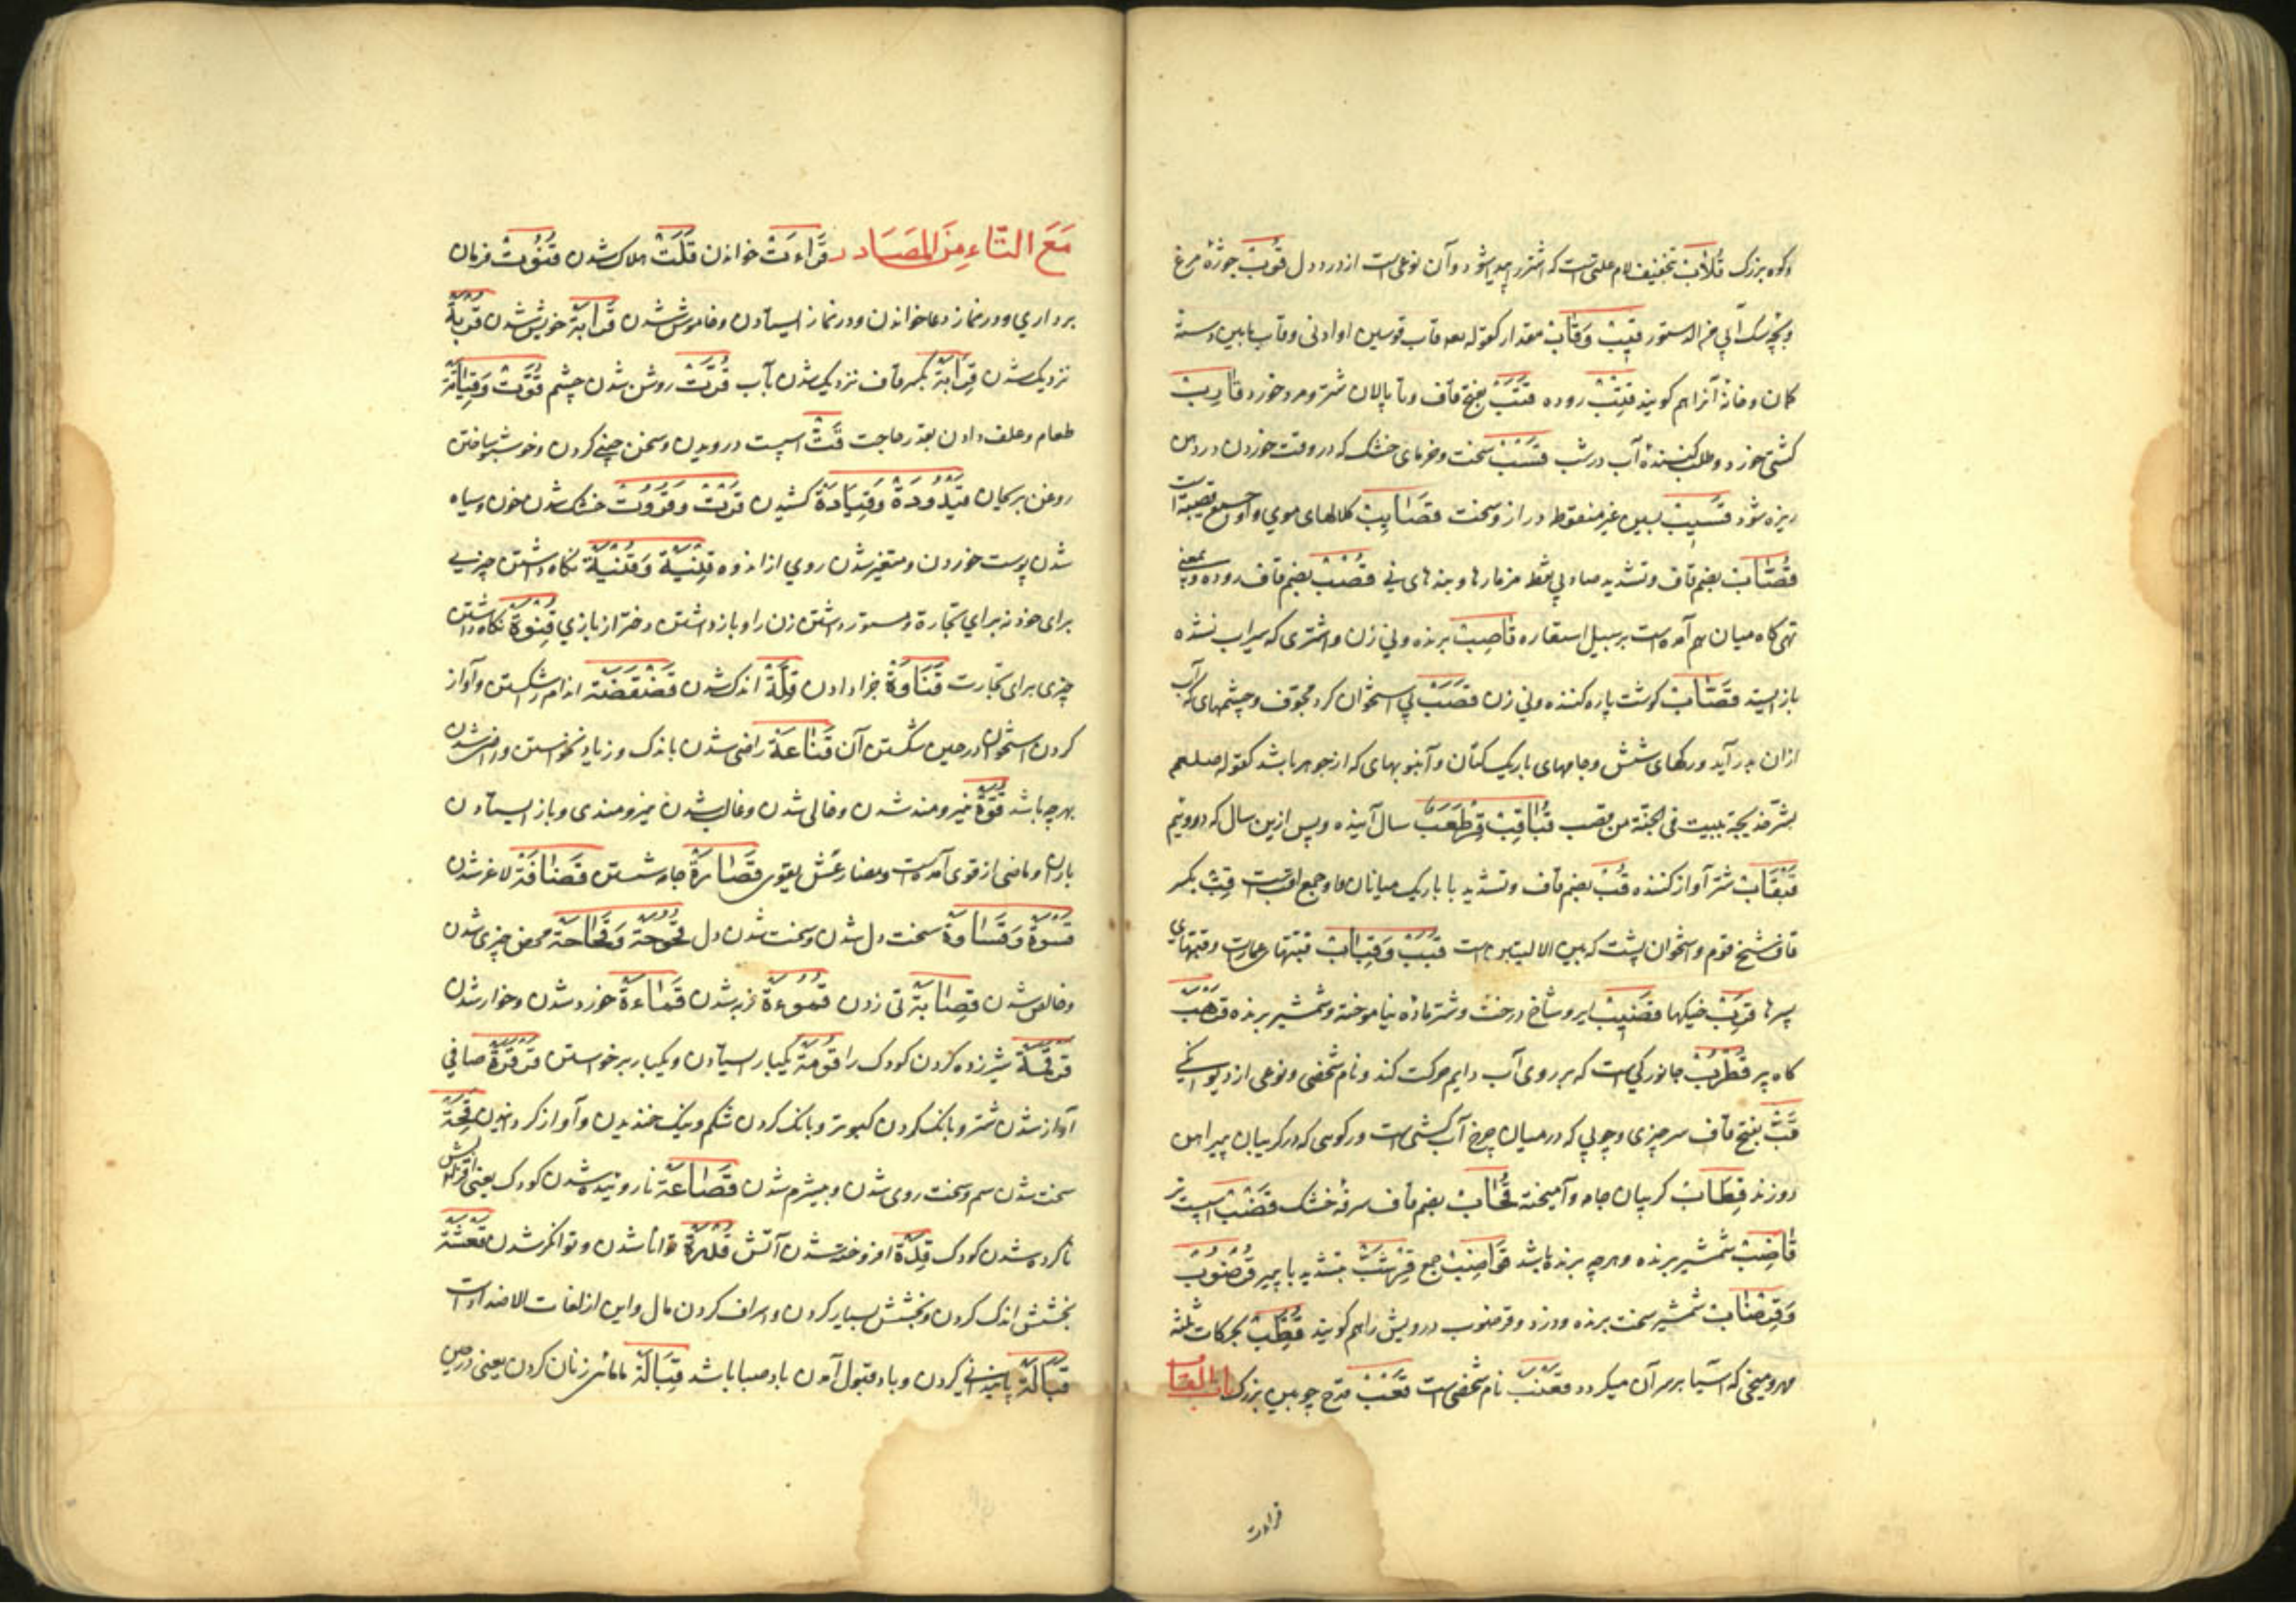 وکوه بزرگ قُلَاب بتخفیف لام علتی است که اشتر را پیدا شود و آن نوعی است از درد دل قُوب جوزهٔ مرغ
قِیب وَقَاب مقدار کقوله تعه قاب قوسین او ادنی وقاب مابین دسته
کمان وخانهٔ آنرا هم کویند قِتْب روده قَتَب بفتح قاف وتا پالان شتر ومرد خورد قَارِب
کشتی خورد وطلب کنندهٔ آب در شب قَسْب سخت وخرمای خشک که در وقت خوردن در دهن
ریزه شود قَسِیب بسین غیر منقوط دراز وسخت قَصَایِب کلالهای موی واو جمع قصیبة است
قُصَّاب بضم قاف وتشدید صاد بی نقط مزمارها وبندهای نی قُصْب بضم قاف روده وبمعنی
تهی کاه میان هم آمده است بر سبیل استعاره قَاصِب برنده ونی زن واشتری که سیراب نشده
باز ایستد قَصَّاب کوشت پاره کننده ونی زن قَصَب نی استخوان کرد مجوف وچشمهای که آب
ازان بدر آید ورکهای شش وجامهای باریک کتان وآنبوبهای که از جوهر باشد کقوله صلعم
بشر خدیجة ببیت فی الجنة من قصب قُبَاقِب قِرْطَعَب سال آینده وپس ازین سال که دوویم
قَبْقَاب شتر آواز کننده قُبّ بضم قاف وتشدید با باریک میانان واو جمع اقب است قِبّ بکسر
قاف شیخ قوم واستخوان پشت که بین الالیتین است قُبَب وَقِبَاب قبتهاء عمارت وقبتهای
سپرها قِرَب خیکها قَضِیب ایر وشاخ درخت وشتر ماده نیاموخته وشمشیر برنده قَرْهَب
کاه پیر قُطْرُب جانورکی است که بر روی آب دایم حرکت کند ونام شخصی ونوعی از دیوانکی
قَبّ بفتح قاف سر چیزی وچوبی که در میان چرخ آب کشی است ورکوی که در کریبان پیراهن
دوزند قِطَاب کریبان جامه وآمیخته قُحَاب بضم قاف سرفهٔ خشک قَضْب اسپست تر
قَاضِب شمشیر برنده وهرچه برنده باشد قَوَاضِب جمع قِرْشَبّ بتشدید با پیر قُرْضُوب
وَقِرْضَاب شمشیر سخت برنده ودزد وقرضوب درویش را هم کویند قُطْب بحرکات ثلثه
مهر ومیخی که آسیا بر سر آن میکردد قَعْنَب نام شخصی است قَعْب قدح چوبین بزرک باب القاف
قراءت
مَعَ التَّاءِ مِنَ المَصَادِر قِرَاءَت خواندن قَلَت هلاک شدن قُنُوت فرمان
برداری ودر نماز دعا خواندن ودر نماز ایستادن وخاموش شدن قَرَابَة خویش شدن قُرْبَة
نزدیک شدن قِرَابَة بکسر قاف نزدیک شدن بآب قُرَّت روشن شدن چشم قُوَّت وَقِیَاتَة
طعام وعلف دادن بقدر حاجت قَتّ اسپست درویدن وسخن چینی کردن وخوشبو ساختن
روغن بریحان قَیْدُودَة وَقِیَادَة کشیدن قَرْت وَقُرُوت خشک شدن خون وسیاه
شدن پوست خوردن ومتغیر شدن روی از اندوه قِنْیَة وَقُنْیَة نکاه داشتن چیزی
برای خود نه برای تجارة ومستور داشتن زن را وباز داشتن دختر از بازی قِنْوَة نکاه داشتن
چیزی برای تجارت قَنَاوَة جزا دادن قِلَّة اندک شدن قَضْقَضَة اندام شکستن وآواز
کردن استخوان در حین شکستن آن قَنَاعَة راضی شدن باندک وزیاد نخواستن وراضی شدن
بهرچه باشد قُوَّة نیرومند شدن وخالی شدن وغالب شدن نیرومندی وباز ایستادن
باران وماضی از قوی آمده است ومضارعش یقوی قَصَارَة جامه شستن قَضَافَة لاغر شدن
قَسْوَة وَقَسَاوَة سخت دل شدن وسخت شدن دل قُحُوحَة وَقَحَاحَة محض چیزی شدن
وخالص شدن قِصَابَة نی زدن قُمُوءَة فربه شدن قَمَاءَة خورد شدن وخوار شدن
قَرْقَمَة شیر زده کردن کودک را قَوْمَة یکبار ایستادن ویکبار برخواستن قَرْقَرَة صافی
آواز شدن شتر وبانک کردن کبوتر وبانک کردن شکم ونیک خندیدن وآواز کردانیدن قِحَة
سخت شدن سم وسخت روی شدن وبیشرم شدن قَصَاعَة نا روئیده شدن کودک یعنی
ناکرده شدن کودک قِدَة افروخته شدن آتش قُدْرَة توانا شدن وتوانکر شدن قَعْثَة
بخشش اندک کردن وبخشش بسیار کردن واسراف کردن مال واین از لغات الاضداد است
قَبَالَة پایندانی کردن وباد قبول آمدن باد صبا باشد قِبَالَة مامائی زنان کردن یعنی در حین